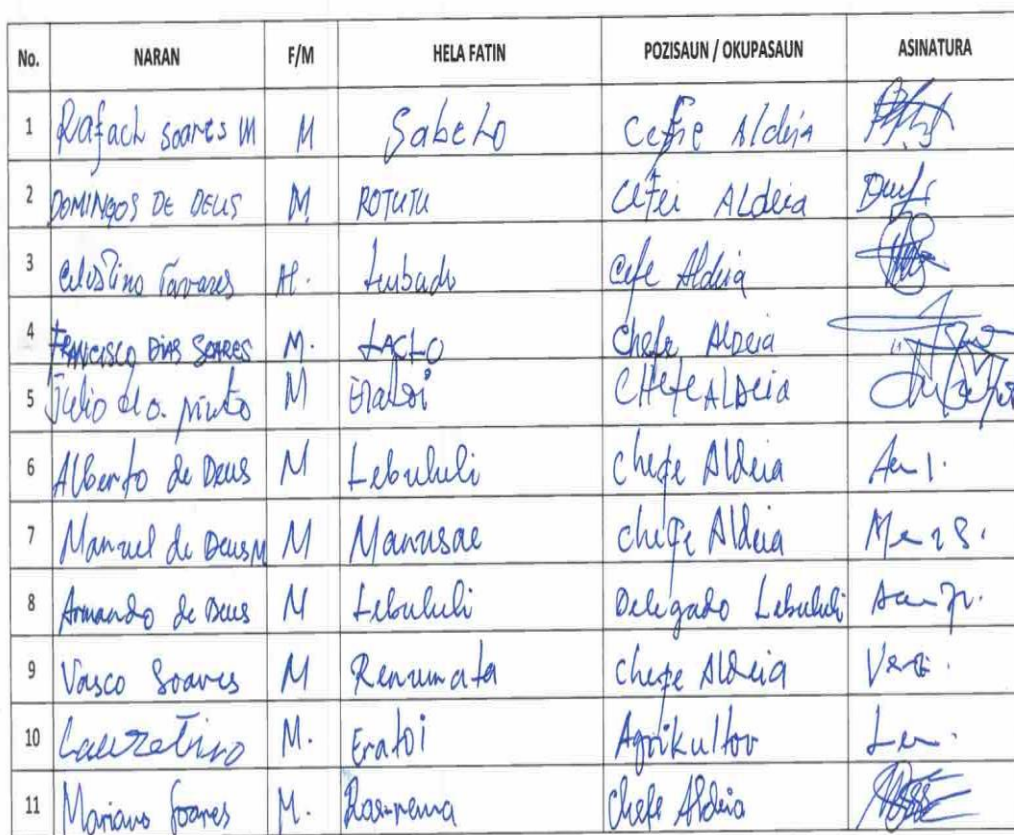 No. NARAN F/M HELA FATIN POZISAUN / OKUPASAUN ASINATURA
1 Rafach soares M M Sabeho Ceffie Aldeia
2 DOMINGOS DE DEUS M. ROTUTU Cefei ALdeia
3 Celistino Tavares M. Cefe Aldeia
4 FRANCISCO DIAS SOARES M. LACLO Chefe ALDeia
5 Julio do. pinto M Eratoi CHefe ALDeia
6 Alberto de Deus M Lebululi Chefe Aldeia
7 Manuel de Deus M M Manusae chefe Aldeia
8 Armando de Deus M Lebululi Delegado Lebululi
9 Vasco Soares M Renumata chefe Aldeia
10 Lauretino M. Eratoi Agrikultor
11 Mariano Soares M. Chefe Aldeia